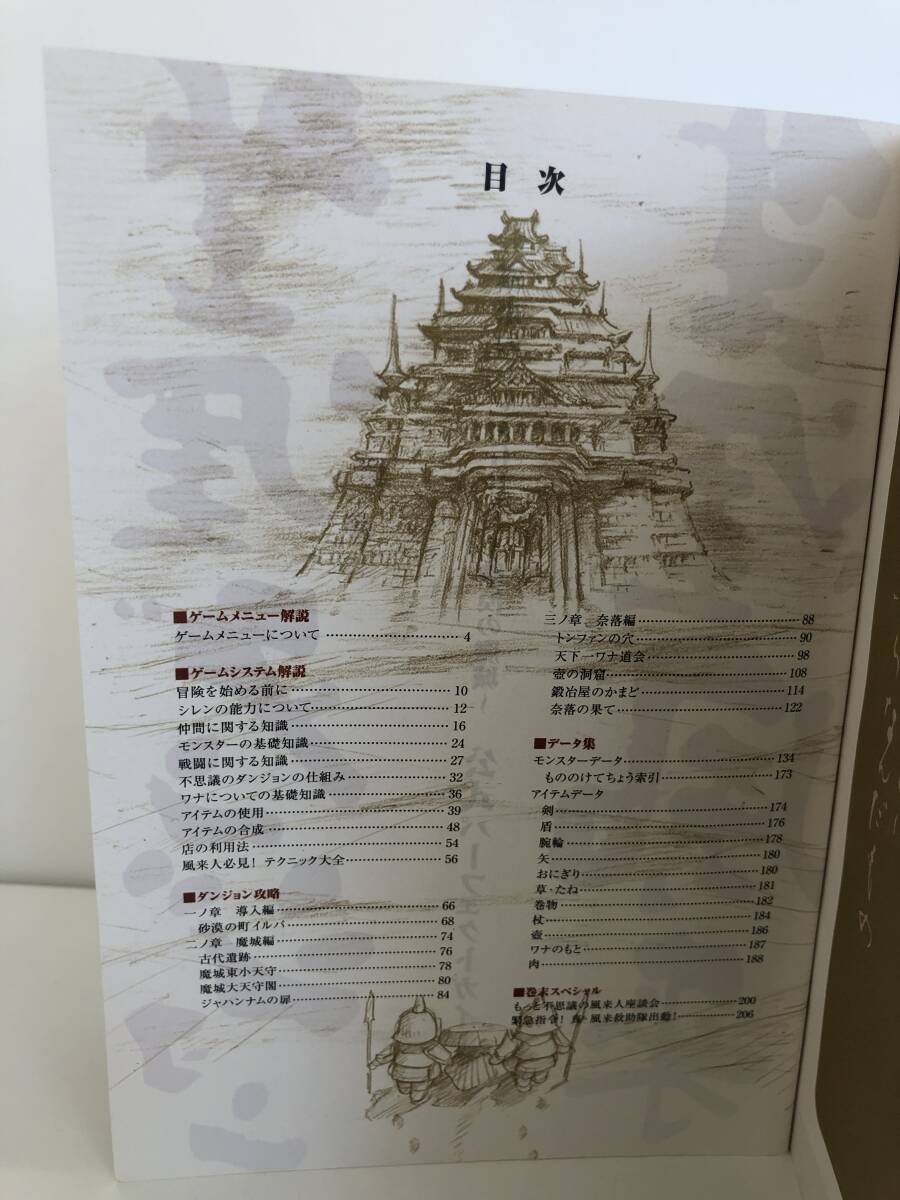 目次
■ゲームメニュー解説
ゲームメニューについて 4
■ゲームシステム解説
冒険を始める前に 10
シレンの能力について 12
仲間に関する知識 16
モンスターの基礎知識 24
戦闘に関する知識 27
不思議のダンジョンの仕組み 32
ワナについての基礎知識 36
アイテムの使用 39
アイテムの合成 48
店の利用法 54
風来人必見! テクニック大全 56
■ダンジョン攻略
一ノ章 導入編 66
砂漠の町イルパ 68
二ノ章 魔城編 74
古代遺跡 76
魔城東小天守 78
魔城大天守閣 80
ジャハンナムの扉 84
三ノ章 奈落編 88
トンファンの穴 90
天下一ワナ道会 98
壺の洞窟 108
鍛冶屋のかまど 114
奈落の果て 122
■データ集
モンスターデータ 134
もののけてちょう索引 173
アイテムデータ
剣 174
盾 176
腕輪 178
矢 180
おにぎり 180
草・たね 181
巻物 182
杖 184
壺 186
ワナのもと 187
肉 188
■巻末スペシャル
もっと不思議の風来人座談会 200
緊急指令! 真・風来救助隊出動! 206